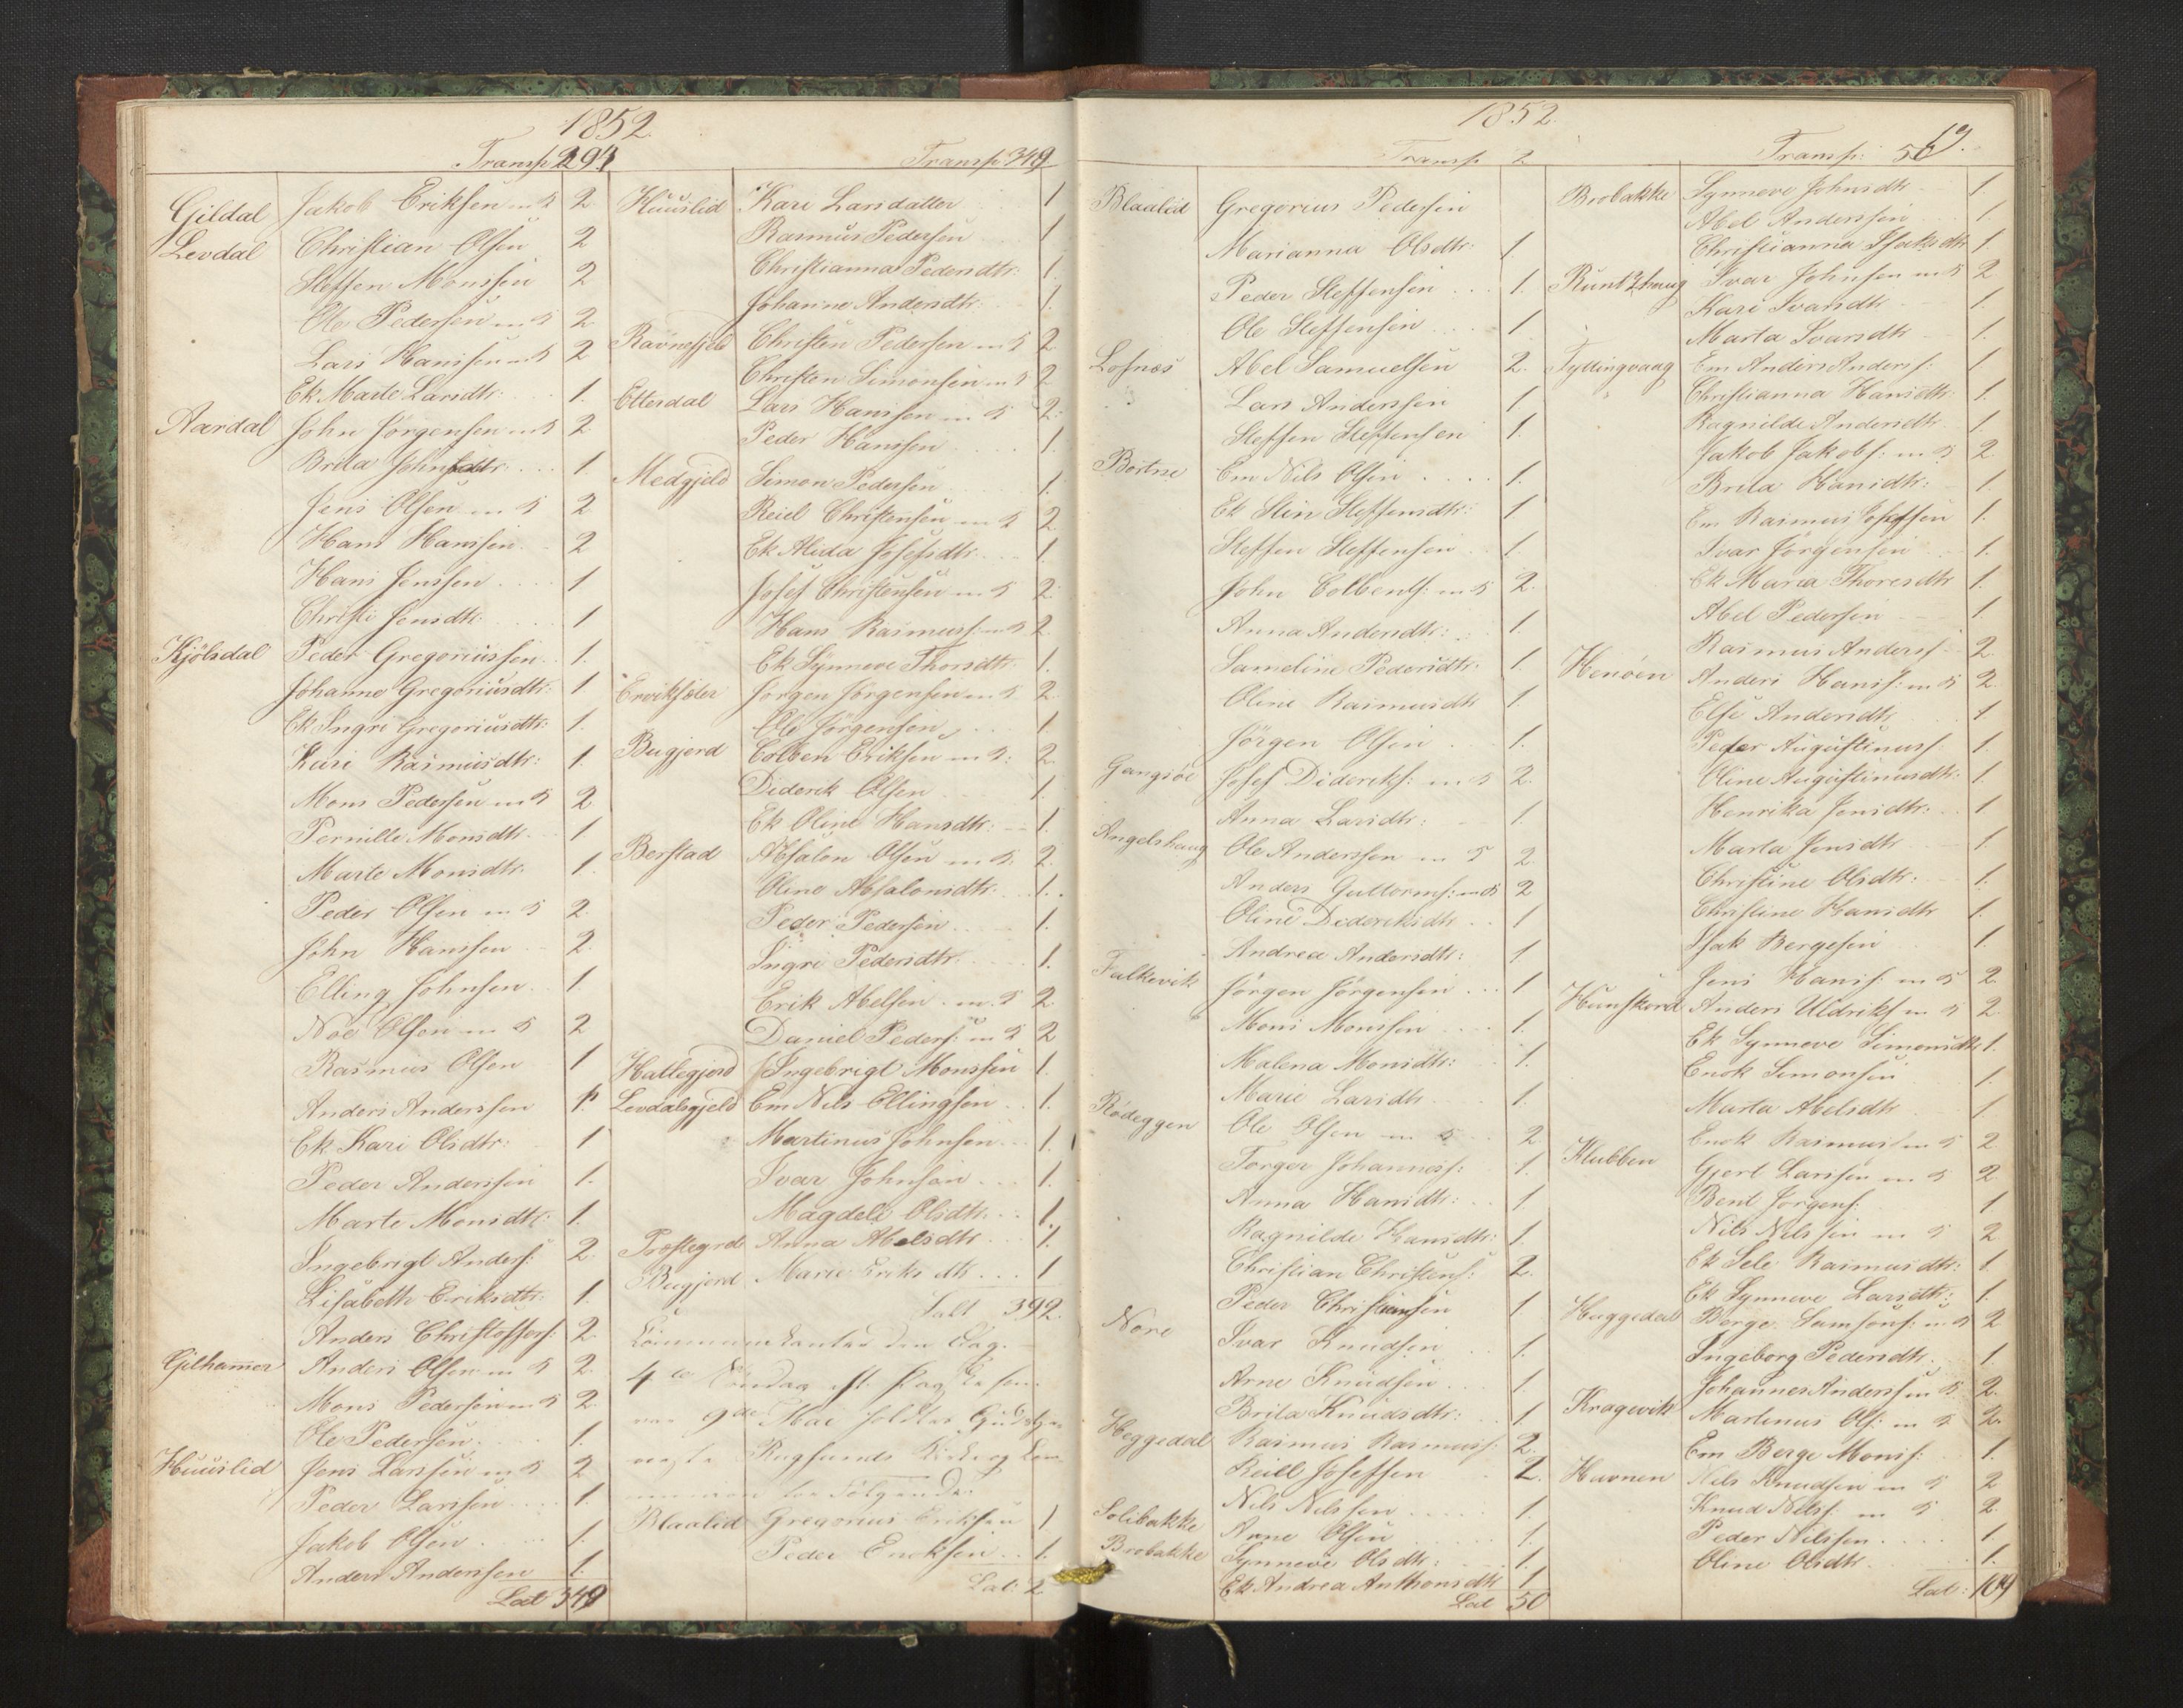 1852.
Transp 294
Gildal Jakob Eriksen m 5 2
Levdal Christian Olsen 2
Steffen Monssen 2
Ole Pedersen m 5 2
Lars Hanssen m 5 2
Ek Marte Larsdtr: 1.
Aardal John Jörgensen m 5 2
Brita Johnsdtr: 1
Jens Olsen m 5 2
Hans Hanssen 2
Hans Jenssen 1
Christi Jensdtr: 1
Kjölsdal Peder Gregoriussen 1.
Johanne Gregoriusdtr: 1
Ek Ingri Gregoriusdtr: 1.
Kari Rasmusdtr: 1.
Mons Pedersen m 5 2
Pernille Monsdtr. 1
Marte Monsdtr. 1.
Peder Olsen m 5 2.
John Hanssen 2.
Elling Johnsen 1
Noe Olsen m 5 2
Rasmus Olsen 1
Anders Anderssen 1.
Ek Kari Olsdtr: 1
Peder Anderssen 1.
Marte Monsdtr: 1.
Ingebrigt Anders: 2.
Lisabeth Eriksdtr: 1.
Anders Christoffers: 2.
Gilhamer Anders Olsen m 5 2.
Mons Pedersen m 5 2.
Ole Pedersen 1.
Huuslid Jens Larssen m 5 2
Peder Larssen 1.
Jakob Olsen 1.
Anders Anderssen 1.
Lat 349
Transp: 349
Huuslid Kari Larsdatter 1
Rasmus Pedersen 1
Christianna Pedersdtr: 1.
Johanne Andersdtr: 1.
Ravnefjeld Christen Pedersen m 5 2
Christen Simonsen m 5 2
Ettesdal Lars Hanssen m 5 2.
Peder Hanssen 1.
Medgjeld Simon Pedersen 1.
Reiel Christensen m 5 2
Ek Alida Josefsdtr. 1.
Josef Christensen m 5 2.
Hans Rasmuss: m 5 2
Ek Synneve Thorsdtr. 1.
Erviksæter Jörgen Jörgensen m 5 2.
Ole Jörgensen 1
Bugjerd Colben Eriksen m 5: 2.
Diderik Olsen 1.
Ek Oline Hansdtr: 1.
Berstad Absalon Olsen m 5. 2.
Oline Absalonsdtr. 1.
Peder Pedersen 1.
Ingri Pedersdtr. 1.
Erik Abelsen m. 5 2
Daniel Peders: m 5 2
Hattegjerd Ingebrigt Monssen 1.
Levdalsgjeld Em Nils Ellingsen 1.
Martinus Johnsen 1.
Ivar Johnsen 1.
Magdele Olsdtr. 1.
Præstegrd Anna Abelsdtr 1.
Bugjerd Marie Eriksdtr 1
Salt 392.
4de Söndag eft Paaske som
var 9de Mai holdtes Gudstje
neste Rugsunds Kirke og Com
munion for Fölgende:
Blaalid Gregorius Eriksen 1
Peder Enoksen 1.
Lat: 2
1852.
Transp 2
Blaalid Gregorius Pedersen
Marianna Olsdtr: 1.
Peder Steffensen 1.
Ole Steffensen 1
Lofnæs Abel Samuelsen 2.
Lars Anderssen 1
Steffen Steffensen 1.
Bortne Em Nils Olsen 1.
Ek Stin Steffensdtr: 1.
Steffen Steffensen 1.
John Colbents: m 5 2.
Anna Andersdtr: 1.
Sameline Pedersdtr. 1.
Oline Rasmusdtr 1.
Jörgen Olsen 1.
Gangsöe Josef Dideriks: m 5 2.
Anna Larsdtr: 1.
Angelshaug Ole Anderssen m 5 2.
Anders Guttorms: m 5 2
Oline Dideriksdtr 1
Andrea Andersdtr: 1
Falkevik Jörgen Jörgensen 1
Mons Monssen 1.
Malena Monsdtr: 1.
Marie Larsdtr 1.
Rödeggen Ole Olsen m 5 2
Torger Johanness: 1.
Anna Hansdtr: 1
Ragnilde Hansdtr: 1.
Christian Christens: 2.
Peder Christiansen 1.
Nore Ivar Knudsen 1.
Arne Knudsen 1
Brita Knudsdtr: 1.
Heggedal Rasmus Rasmuss: 2.
Reiel Josefsen 2.
Nils Nilssen 1.
Solibakke Arne Olsen 1.
Brobakke Synneve Olsdtr: 1.
Ek Andrea Anthonsdtr 1
Lat 50
19.
Transp: 50
Brobakke Synneve Johnsdtr 1.
Abel Anderssen 1.
Christianna Isaksdtr 1.
Runthaug Ivar Johnsen m 5 2
Kari Ivarsdtr 1.
Marta Ivarsdtr 1.
Tyttingvaag Em Anders Anders: 1
Christianna Hansdtr 1.
Ragnilde Andersdtr 1.
Jakob Jakobs: m 5 2
Brita Hansdtr: 1.
Em Rasmus Josefsen 1.
Ivar Jörgensen 1.
Ek Maria Thoresdtr 1.
Abel Pedersen 1.
Rasmus Anders: 2.
Henöen Anders Hans: m 5 2.
Else Andersdtr 1
Peder Augustinuss 1.
Oline Augustinusdtr: 1.
Henrika Jensdtr: 1
Marta Jensdtr 1
Christine Olsdtr: 1.
Christine Hansdtr 1.
Isak Bergesen 1.
Jens Hans: m 5 2.
Hunskord Anders Uldriks m 5 2
Ek Synneve Simonsdtr 1.
Enok Simonsen 1.
Marta Abelsdtr 1
Enok Rasmus: m 5 2
Klubben Gjert Larssen m 5 2
Bent Jörgens: 1
Nils Nilssen m 5 2
Ek Sele Rasmusdtr: 1.
Ek Synneve Larsdtr: 1.
Huggedal Berge Samsons: m 5 2
Ingeborg Pedersdtr. 1.
Johannes Anderssen 5 2.
Kragevik Martinus Ols: m 5 2.
Em Berge Mons: 1.
Havnen Nils Knudsen m 5 2
Knud Nilss: m 5 2.
Peder Nilssen 1.
Oline Olsdtr. 1.
Lat: 109